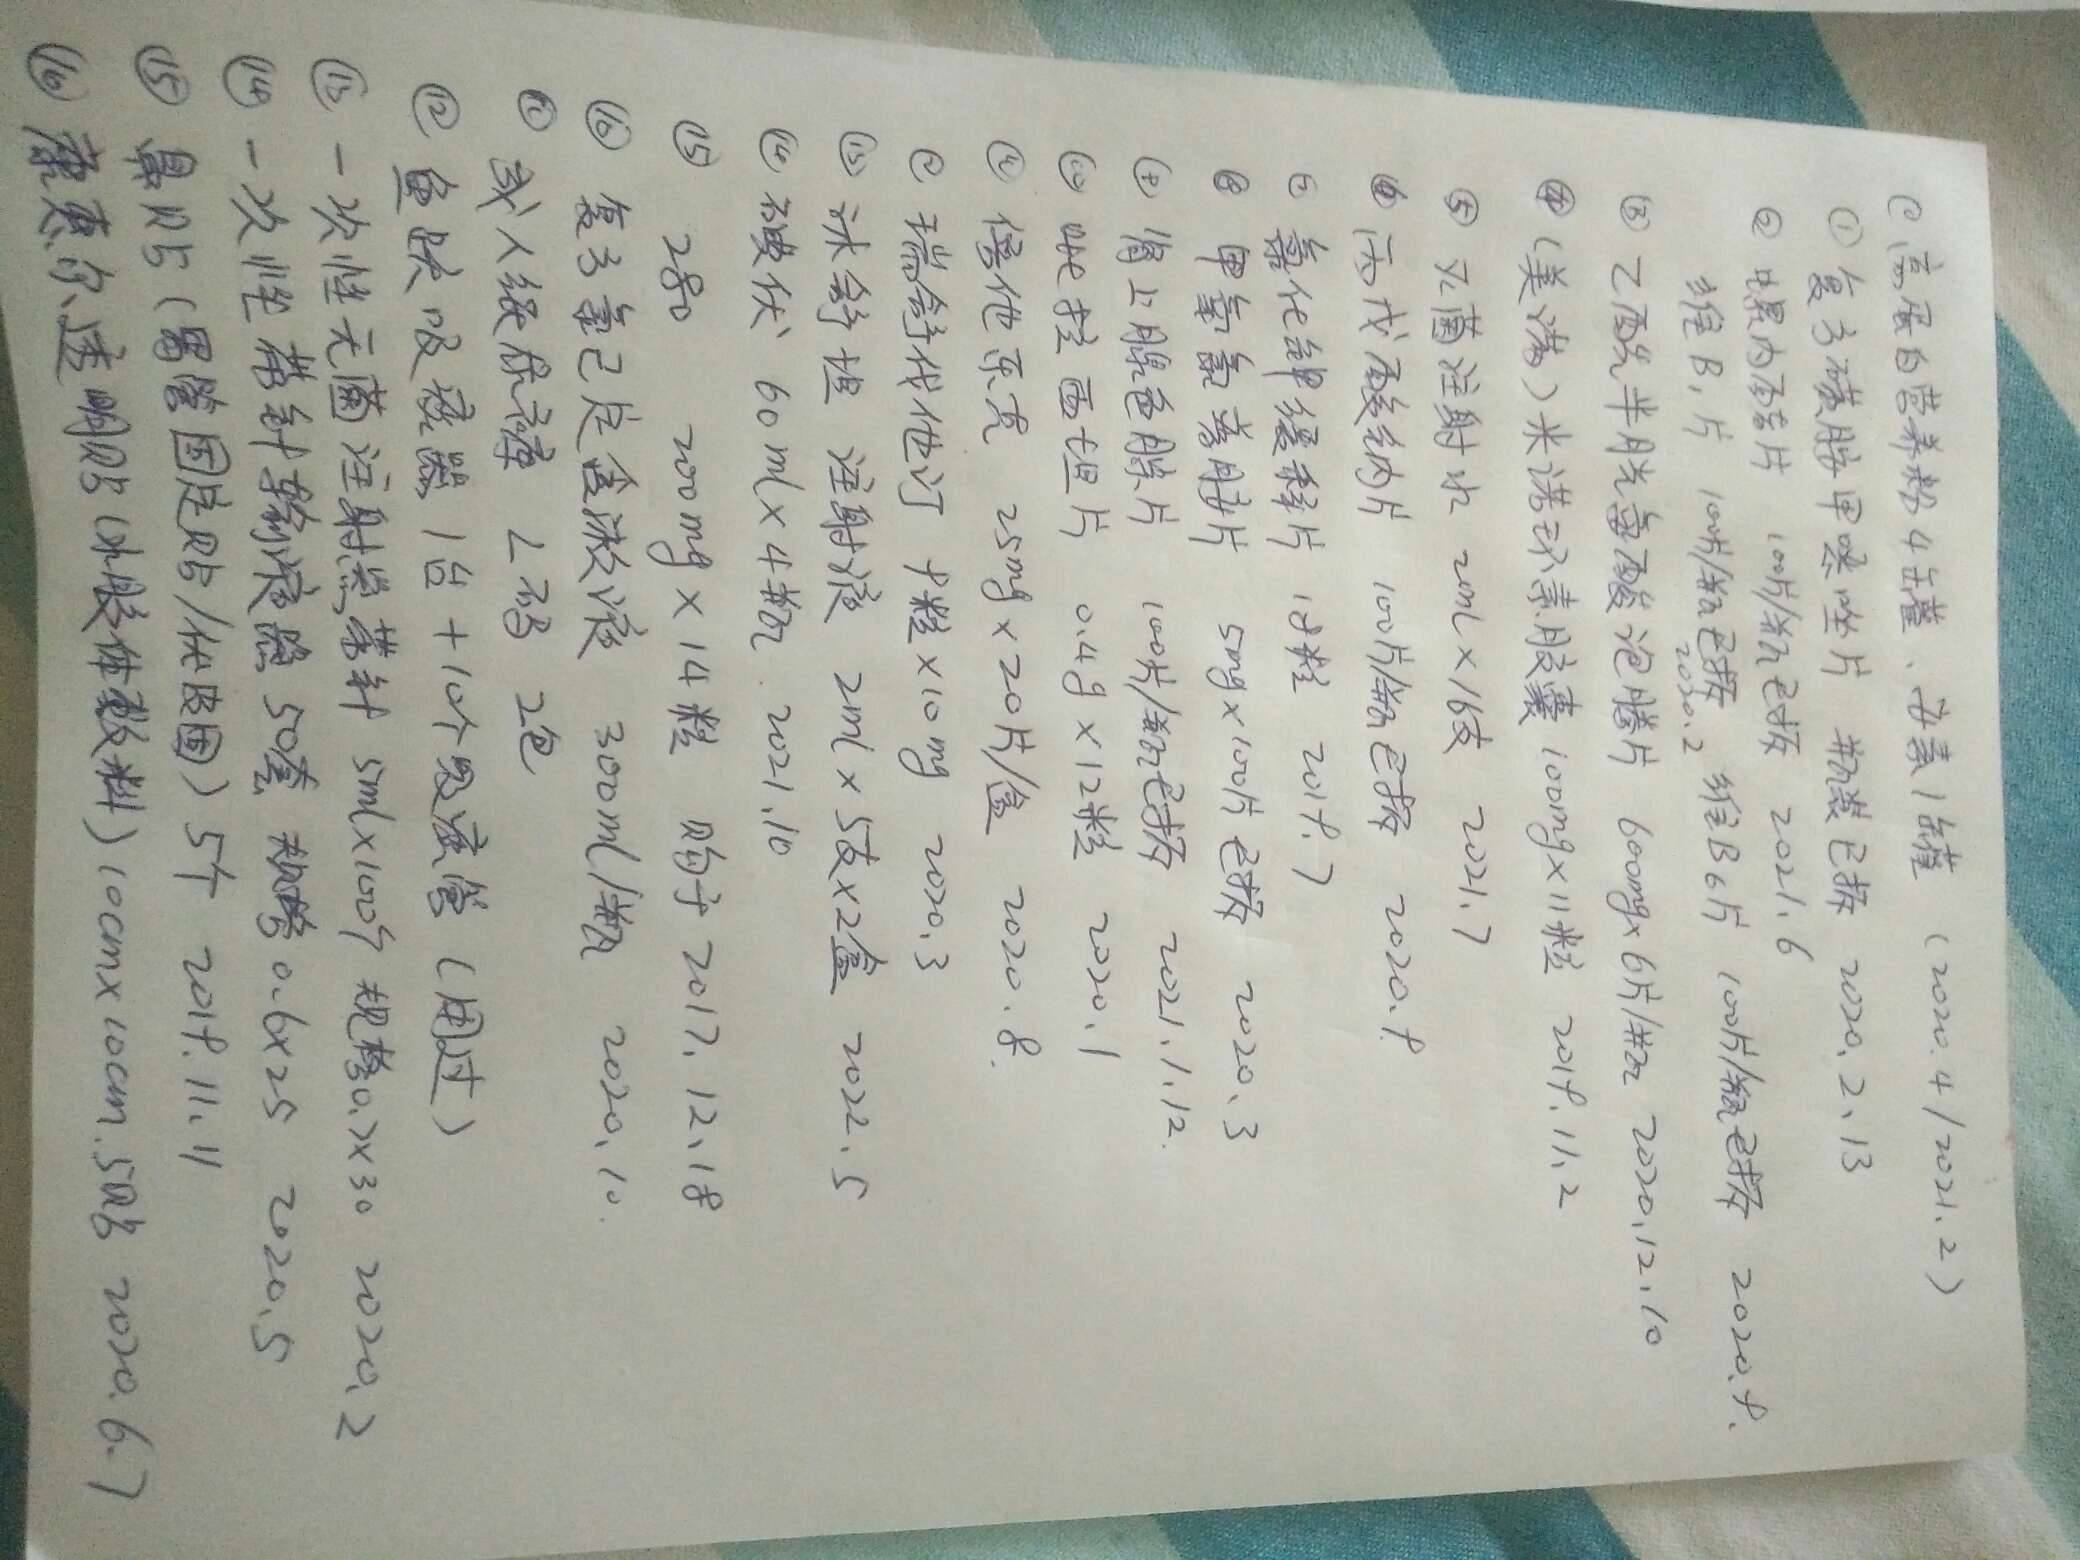 ① 高蛋白营养粉4罐、安素1罐 (2020.4/2021.2)
① 复方磺胺甲噁唑片 瓶装已拆 2020.2.13
② 螺内酯片 100片/瓶已拆 2021.6
维B1片 100片/瓶已拆 2020.2 维B6片 100片/瓶已拆 2020.9.
③ 乙酰半胱氨酸泡腾片 600mg×6片/瓶 2020.12.10
④ (美满)米诺环素胶囊 100mg×11粒 2019.11.2
⑤ 灭菌注射水 2ml×16支 2021.7
⑥ 丙戊酸钠片 100片/瓶已拆 2020.9
⑦ 氯化钾缓释片 18粒 2019.7
⑧ 甲氧氯普胺片 5mg×100片已拆 2020.3
⑨ 肾上腺色腙片 100片/瓶已拆 2021.1.12.
⑩ 吡拉西坦片 0.4g×12粒 2020.1
⑪ 倍他乐克 25mg×20片/盒 2020.8.
⑫ 瑞舒伐他汀 9粒×10mg 2020.3
⑬ 沐舒坦 注射液 2ml×5支×2盒 2022.5
⑭ 碘伏 60ml×4瓶 2021.10
⑮ 280 200mg×14粒 购于2017.12.18
⑯ 复方氯己定含漱液 300ml/瓶 2020.10.
⑪ 成人纸尿裤 L码 2包
⑫ 鱼跃吸痰器1台+10个吸痰管(用过)
⑬ 一次性无菌注射器带针 5ml×100个 规格0.7×30 2020.2
⑭ 一次性带针输液器50套 规格0.6×25 2020.5
⑮ 鼻贴(胃管固定贴/优皮固)5个 2019.11.11
⑯ 康惠尔透明贴(水胶体敷料)10cm×10cm.5贴 2020.6.7